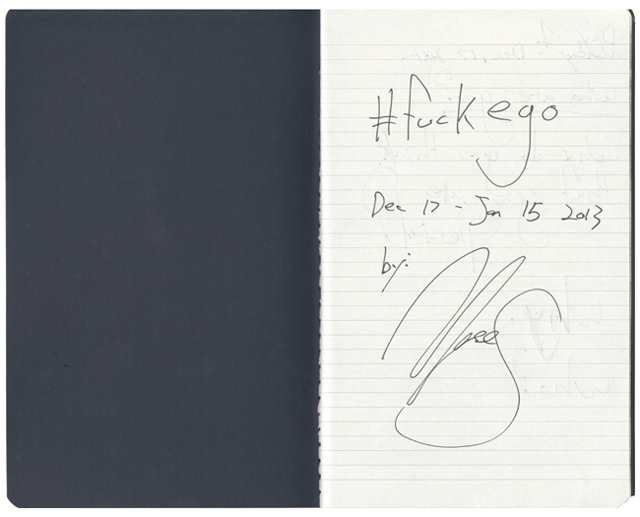 #fuckego
Dec 17 - Jan 15 2013
by: